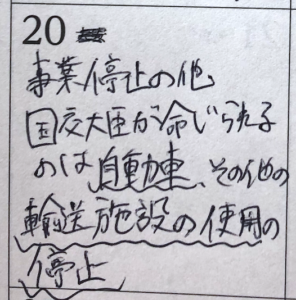 20
事業停止の他
国交大臣が命じられる
のは自動車、その他の
輸送施設の使用の
停止